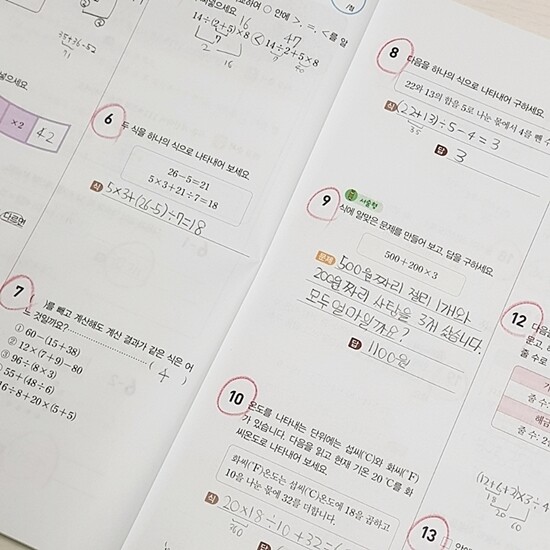 안에 >, =, <를 알
넣으세요.
16
47
14÷(2+5)×8 < 14÷2+5×8
7
7
40
2
16
35+36-52
71
넣으세요.
×2
42
다르면
6
두 식을 하나의 식으로 나타내어 보세요.
26-5=21
5×3+21÷7=18
식 5×3+(26-5)÷7=18
7
( )를 빼고 계산해도 계산 결과가 같은 식은 어
느 것일까요? ( 4 )
① 60-(15+38)
② 12×(7+9)-80
③ 96÷(8×3)
55+(48÷6)
16÷8+20×(5+5)
8
다음을 하나의 식으로 나타내어 구하세요.
22와 13의 합을 5로 나눈 몫에서 4를 뺀 수
식 (22+13)÷5-4=3
35
답 3
9
서술형
식에 알맞은 문제를 만들어 보고, 답을 구하세요.
500+200×3
문제 500원짜리 젤리 1개와
200원짜리 사탕을 3개 샀습니다.
모두 얼마일까요?
답 1100원
10
온도를 나타내는 단위에는 섭씨(℃)와 화씨(℉)
가 있습니다. 다음을 읽고 현재 기온 20 ℃를 화
씨온도로 나타내어 보세요.
화씨(℉)온도는 섭씨(℃)온도에 18을 곱하고
10을 나눈 몫에 32를 더합니다.
식 20×18÷10+32=6
360
12
다음을
문고,
줄 수로
줄 수
해금
줄 수: 2
(12+6+2)×3÷4
18
20
60
13
안에